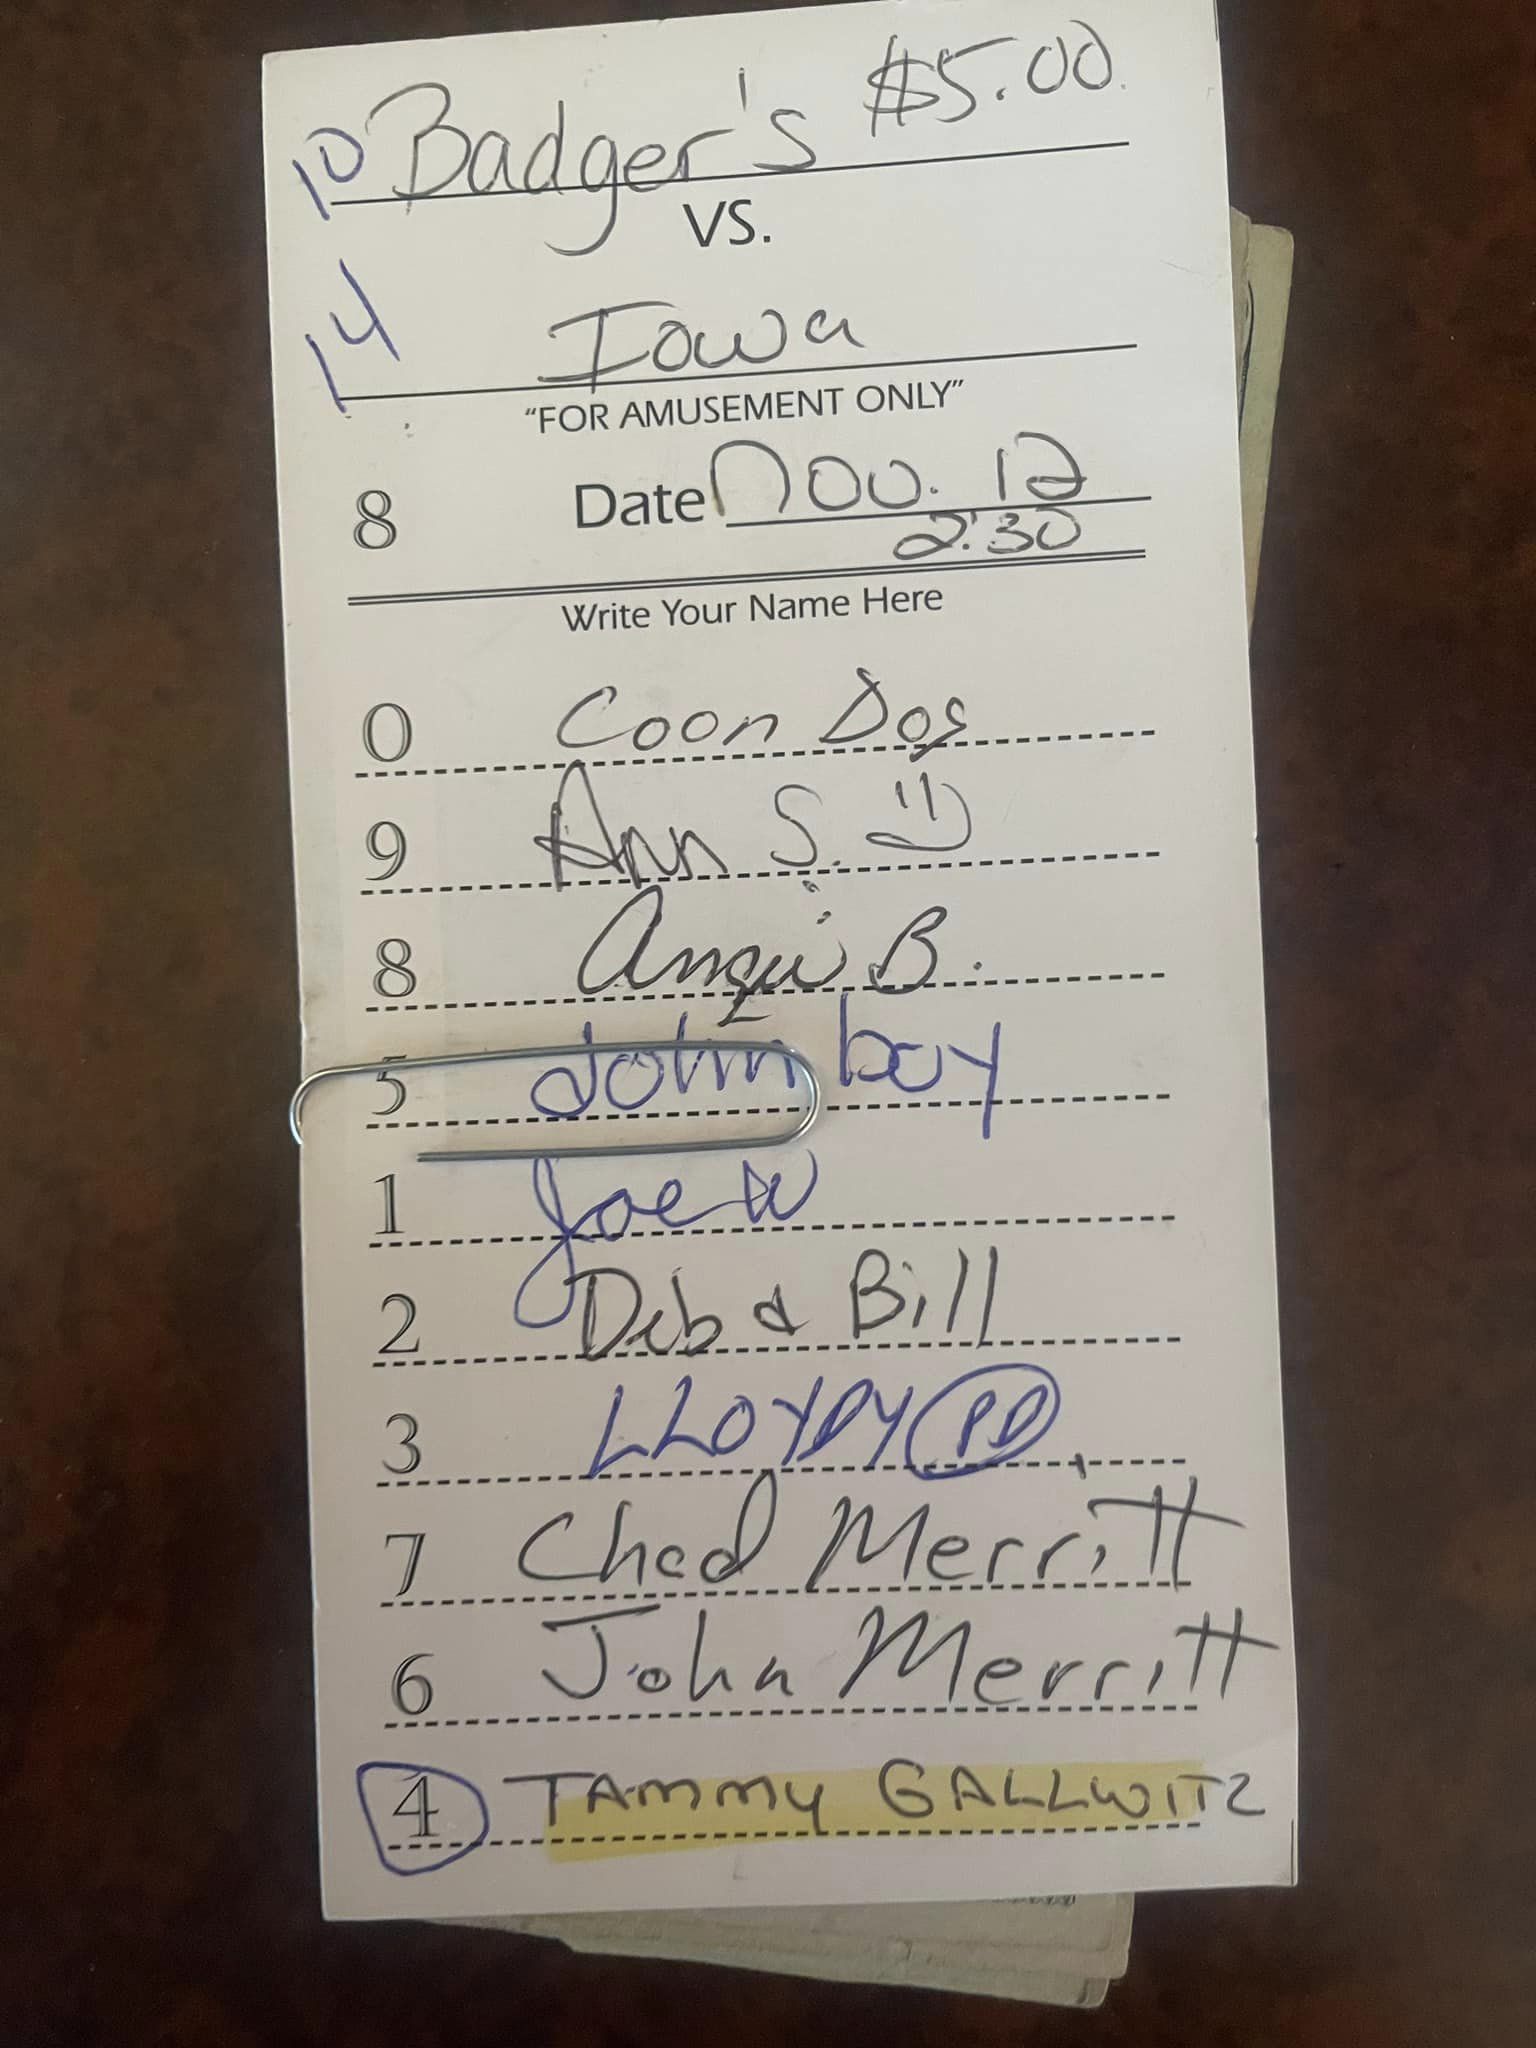 10 Badger's $5.00
VS.
14 Iowa
"FOR AMUSEMENT ONLY"
8 Date Nov. 12
2:30
Write Your Name Here
0 Coon Dog
9 Ann S.
8 Angie B.
5 John boy
1 Joe W
2 Deb & Bill
3 LLOYDY PD
7 Chad Merritt
6 John Merritt
4 TAMMY GALLWITZ